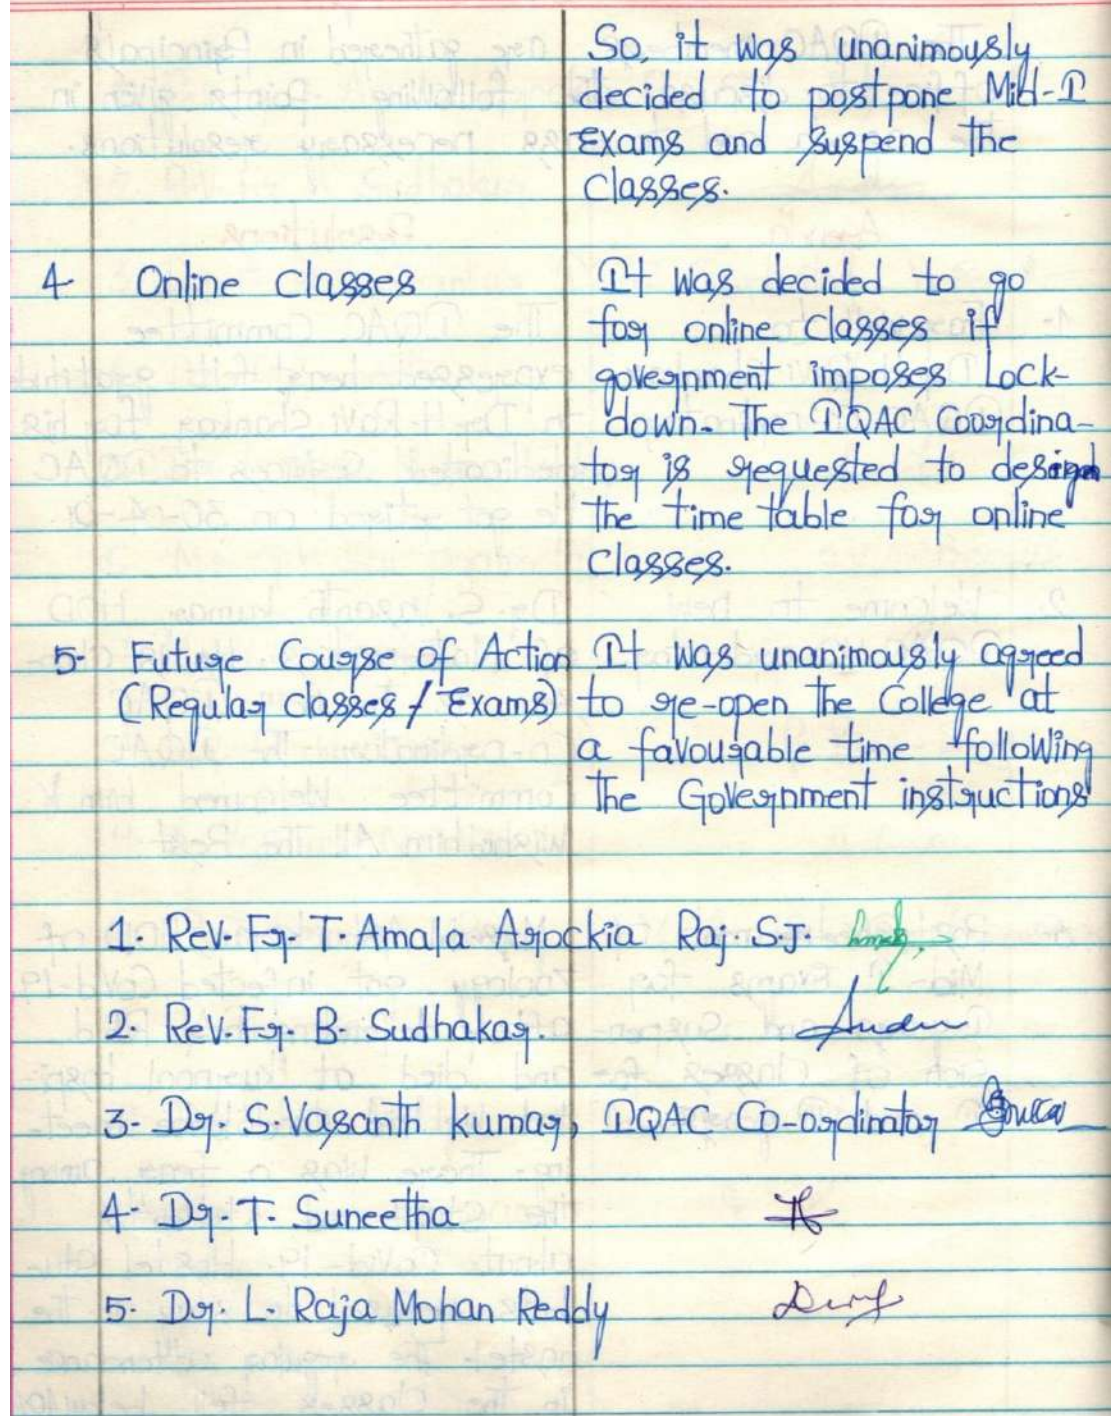 So, it was unanimously
decided to postpone Mid-I
Exams and suspend the
Classes.
4 Online Classes It was decided to go
for online classes if
government imposes Lock-
down. The IQAC Coordina-
tor is requested to design
the time table for online
Classes.
5. Future Course of Action It was unanimously agreed
(Regular classes / Exams) to re-open the College at
a favourable time following
the Government instructions
1. Rev. Fr. T. Amala Arockia Raj. S.J.
2. Rev. Fr. B. Sudhakar.
3. Dr. S. Vasanth kumar, IQAC Co-ordinator
4. Dr. T. Suneetha
5. Dr. L. Raja Mohan Reddy